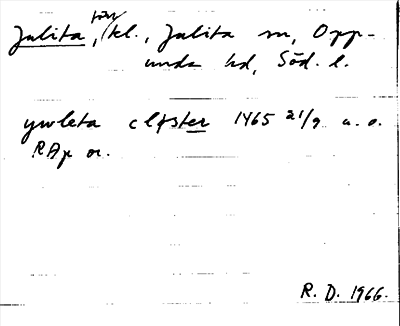 Julita, förr kl., Julita sn, Opp-
unda hd, Söd. l.
ywleta closter 1465 21/9 u. o.
RAp or.
R. D. 1966.